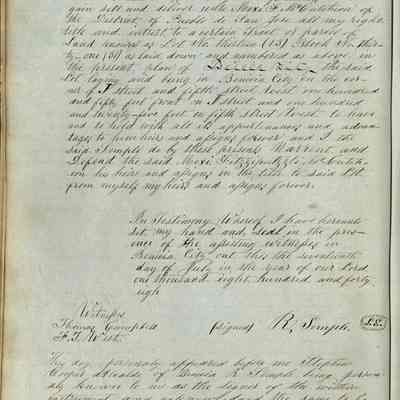 gain sell and deliver unto Moxi F. McCutcheon
of the District of Pueblo de San Jose all my right
title and intrust to a certain Tract or parcel of
Land known as Lot No thirteen (13) Block No thir-
ty-one (31) as laid down and numbered as above in
the present plan of The said
Lot laying and being in Benicia City on the cor-
ner of I street and fifth street West one hundred
and fifty feet front on I street and one hundred
and twenty-five feet on fifth street West to have
and to hold with all its appurtenances and advan-
tages to him heirs and assigns forever and I the
said Semple do by these presents Warrent and
Defend the said Moxi McCutch-
eon his heirs and assigns in the title to said Lot
from myself my heirs and assigns forever.
In Testimony Whereof I have hereunto
set my hand and seal in the pres-
ence of the witnesses in
Benicia City out this the seventeenth
day of July in the year of our Lord
one thousand eight hundred and forty
eigh
Witness
Thomas Campbell (signed) R, Semple L.S.
F. T.
This day personally appeared before me Stephen
Cooper Alcalde of Benicia R Semple being person-
ally known to me as the signer of the within
instrument and acknowledged the same to be